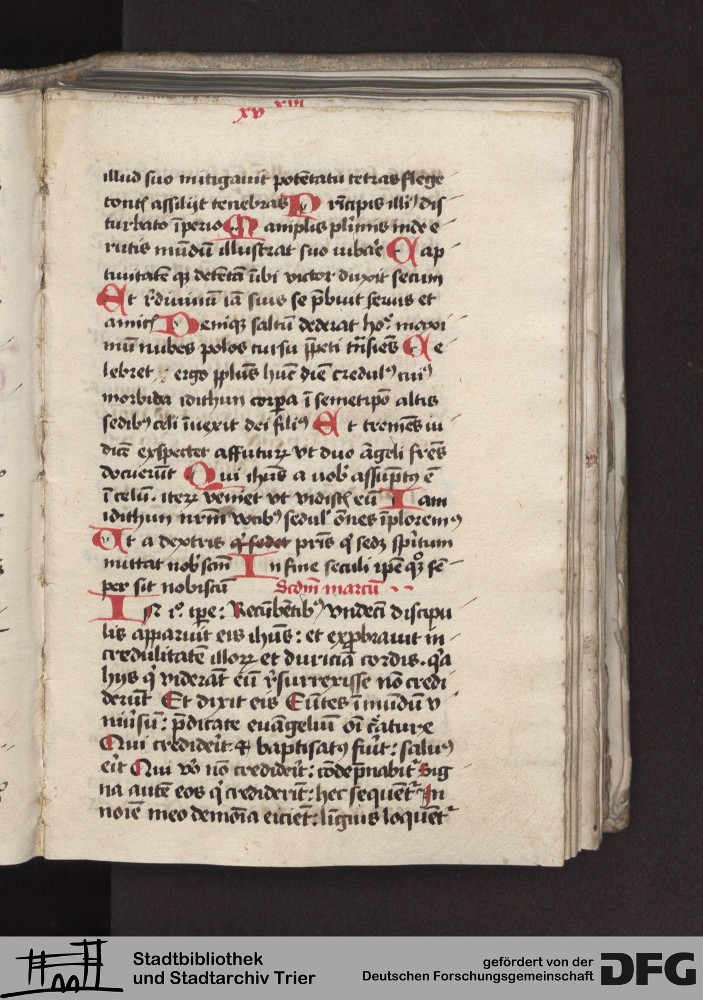 xv xviii
illud suo mitigauit potētatu tetras flege
tontꝭ assilijt tenebras Prīcipis illiꝰ dis
turbato īperio Maniplis plīmis inde e
rutis mūdū illustrat suo iubare Cap
tiuitatē qꝫ detētā ībi victor duxit secum
Et rͥdiuiuū iā suis se p̄buit seruis et
amicꝭ Deniqꝫ saltū dederat hoͬ maxi
mū nubes polos cursu p̄peti trāsiēs Ce
lebret ergo pplūs hūc diē credulꝰ cuiꝰ
morbida idithun corpa ī semetipō altis
sedibꝰ celi īuexit dei filiꝰ Et tremēs iu
dicē expectet affuturꝝ vt duo āgeli frēs
docuerūt Qui ihūs a uobͥ assūptꝰ ē
ī celū. iterꝝ veniet vt vidistꝭ eū Iam
idithun nrīm vocibꝰ sedulͥ oēs īploremꝰ
Ut a dextris q̇ sedet prīs qͥ sedꝫ spīritum
mittat nobͥ scm̄ In fine seculi ipē qꝫ sē
per sit nobiscū Scdm̄ marcū
In iͦ. tꝑe: Recūbētibꝰ vndeci discipu
lis apparuit eis ihūs: et exprobrauit in
credulitatē illorꝝ et duriciā cordis. qͥa
hijs qͥ viderāt eū rͤsurrexisse nō credi
derūt Et dixit eis Eūtes ī mūdū v
niūsū: p̄dicate euāgeliū oī creature
Qui crediderͥt ⁊ baptisatꝰ fuīt: saluꝰ
eͥt Qui vͦo nō credideͥt: cōdēpnabitͬ Sig
na autē eos qͥ crediderīt: hec sequētͬ In
noīe meo demōia eiciēt: līguis loquētͬ
Stadtbibliothek
und Stadtarchiv Trier
gefördert von der
Deutschen Forschungsgemeinschaft
DFG